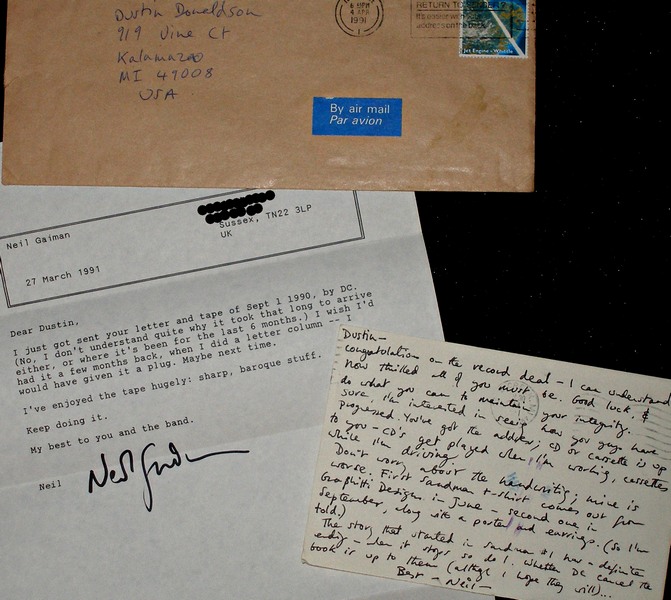 Dustin Donaldson
919 Vine Ct
Kalamazoo
MI 49008
USA
6 PM
4 APR
1991
RETURN TO SENDER?
Jet Engine - Whittle
By air mail
Par avion
Neil Gaiman
Sussex, TN22 3LP
UK
27 March 1991
Dear Dustin,
I just got sent your letter and tape of Sept 1 1990, by DC.
(No, I don't understand quite why it took that long to arrive
either, or where it's been for the last 6 months.) I wish I'd
had it a few months back, when I did a letter column -- I
would have given it a plug. Maybe next time.
I've enjoyed the tape hugely: sharp, baroque stuff.
Keep doing it.
My best to you and the band.
Neil
Neil Gaiman
Dustin—
congratulations on the record deal — I can understand
how thrilled all of you must be. Good luck, &
do what you can to maintain your integrity.
Sure, I'm interested in seeing how you guys have
progressed. You've got the address; CD or cassette is up
to you — CD's get played when I'm working, cassettes
while I'm driving.
Don't worry about the handwriting; mine is
worse. First Sandman t-shirt comes out from
Graphitti Designs in June — second one in
September, along with a poster and earrings. (So I'm
told.)
The story that started in Sandman #1 has a definite
ending — when it stops so do I. Whether DC cancel the
book is up to them (althgh I hope they will)...
Best — Neil —